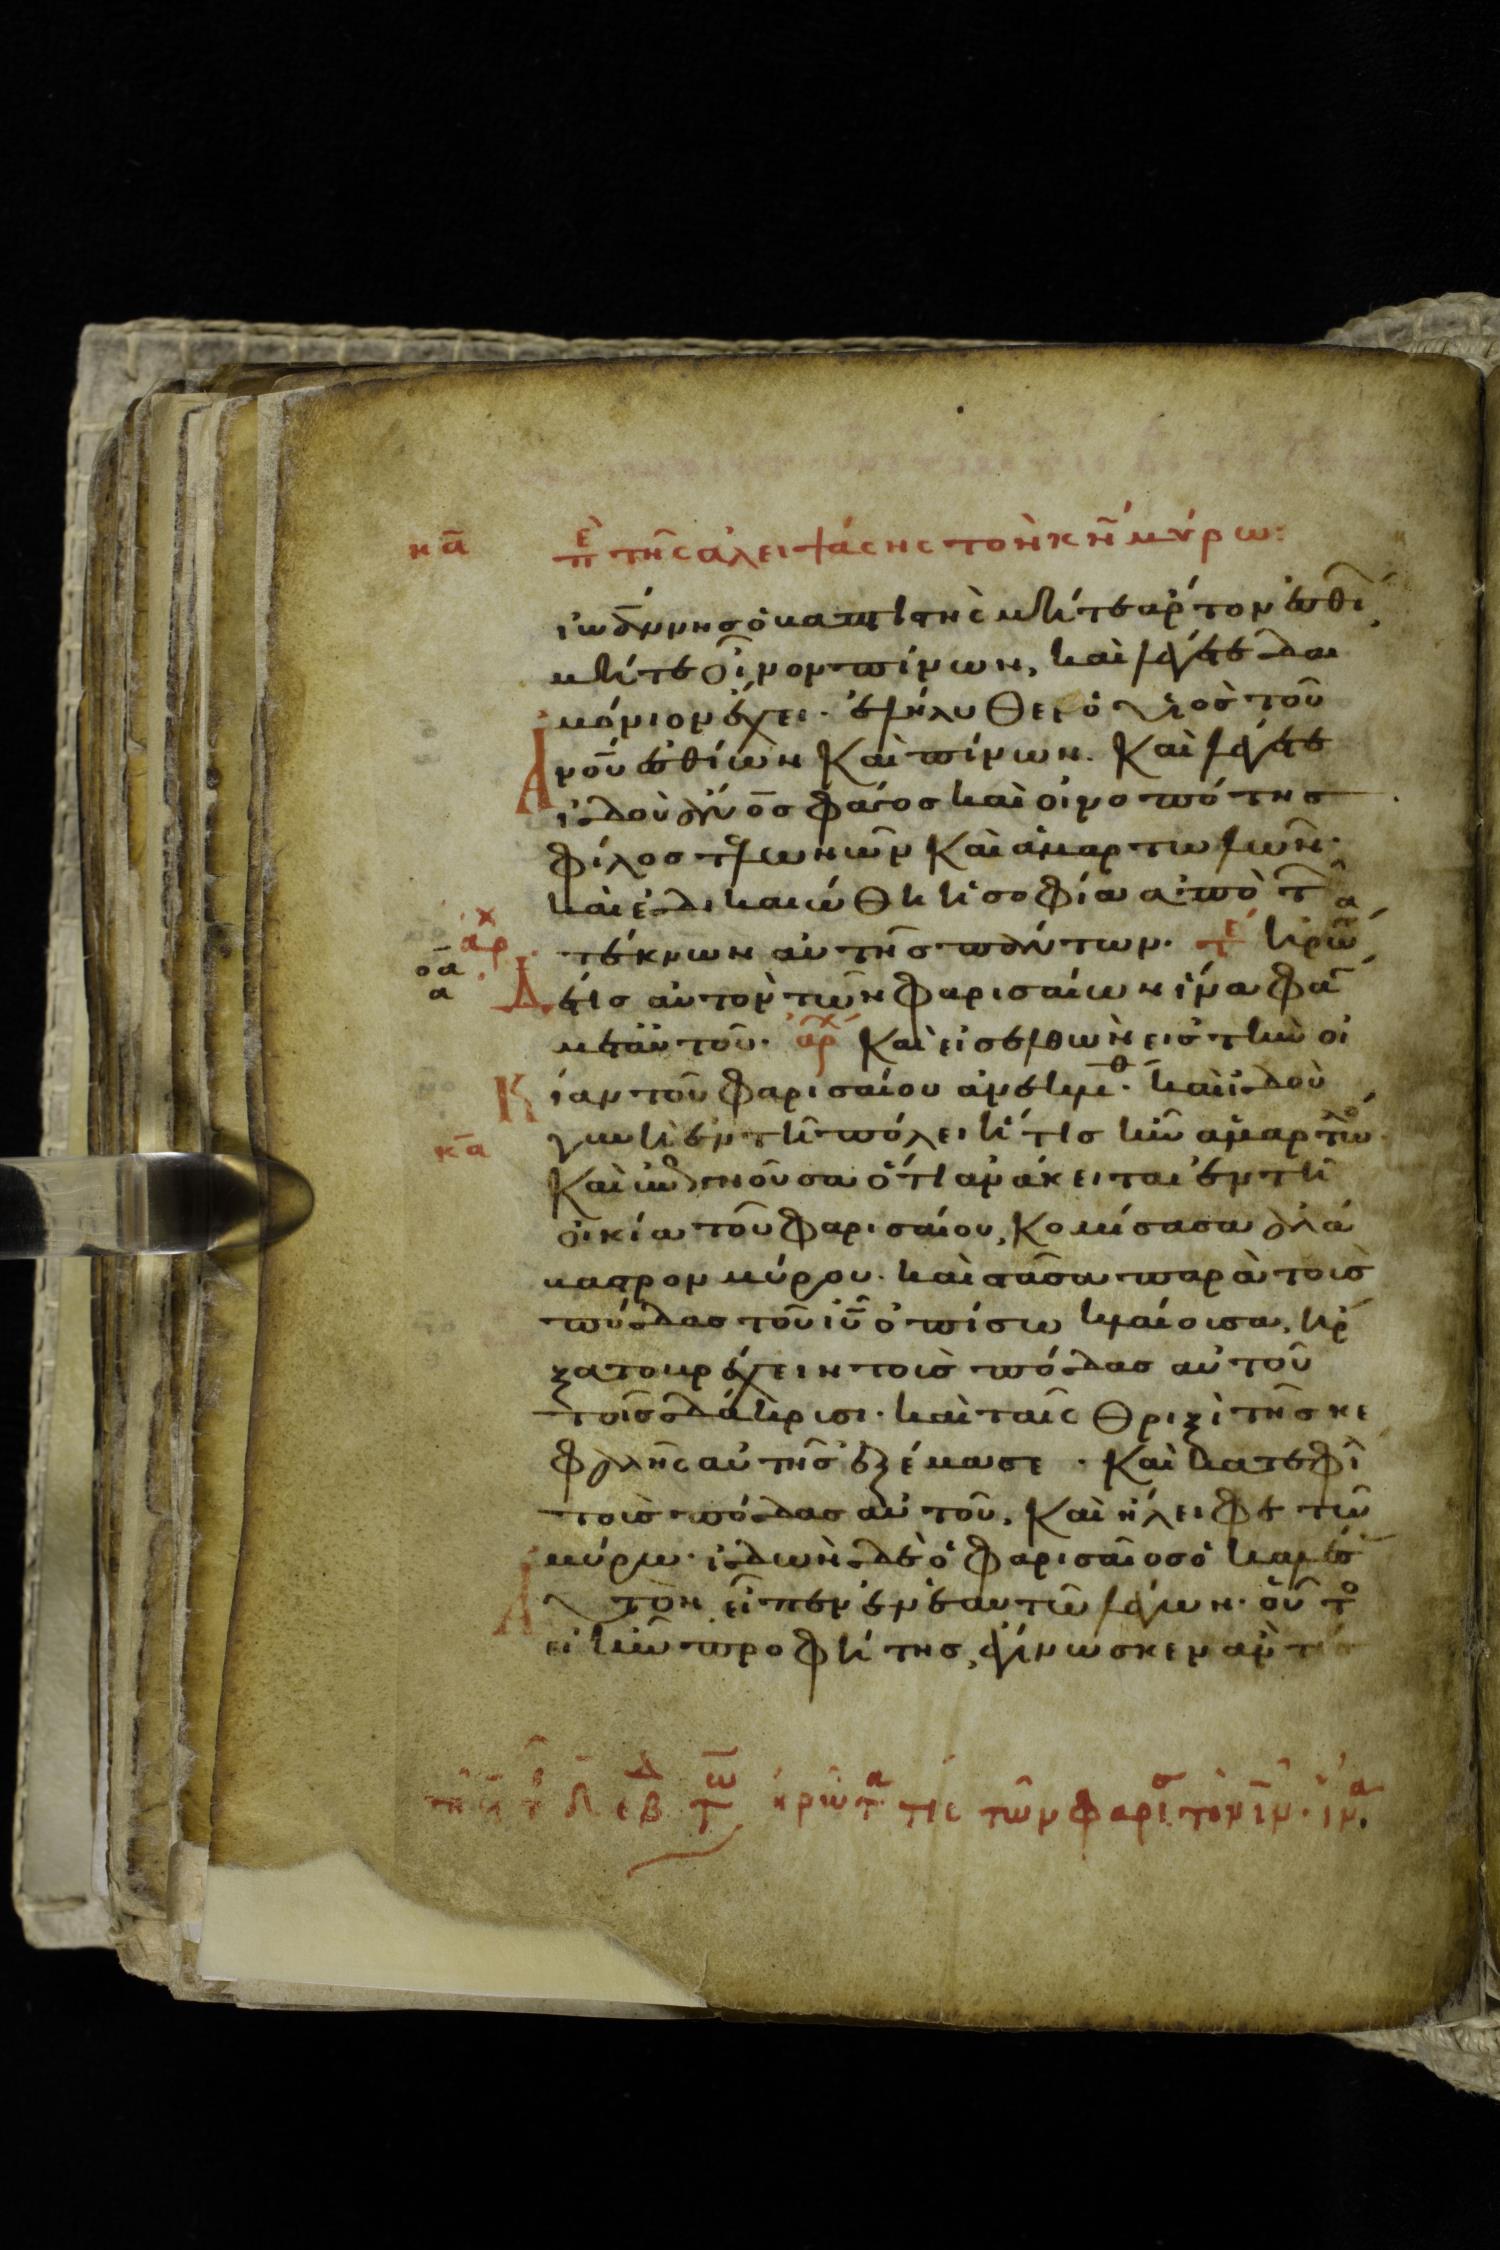 κα̅ ἐπ τῆς ἀλειψάσης τὸν κ̅ν̅ μύρω:
ἰωάννης ὁ βαπτιστὴς μήτε ἄρτον ἐσθί
μήτε οἶνον πίνων, καὶ λέγετε δαι
μόνιον ἔχει. ἐλήλυθεν ὁ υἱὸς τοῦ
α̅ν̅ο̅υ̅ ἐσθίων καὶ πίνων. καὶ λέγετε
ἰδοὺ α̅ν̅ο̅ς̅ φάγος καὶ οἰνοπότης
φίλος τελωνῶν καὶ ἁμαρτωλῶν.
καὶ ἐδικαιώθη ἡ σοφία ἀπὸ τ
τέκνων αὐτῆς πάντων. τε ἠρώ
τις αὐτὸν τῶν φαρισαίων ἵνα φα
μετ αὐτοῦ. ἀρχ καὶ εἰσελθὼν εἰς τὴν οἰ
κίαν τοῦ φαρισαίου ἀνεκλιθ. καὶ ἰδοὺ
γυνὴ ἐν τῆ πόλει ἥτις ἦν ἁμαρτω
καὶ ἐπιγνοῦσα ὅτι ἀνάκειται ἐν τῆ
οἰκία τοῦ φαρισαίου, κομίσασα ἀλά
βαστρον μύρου. καὶ στᾶσα παρὰ τοὺς
πόδας τοῦ ι̅υ̅ ὀπίσω κλαίουσα, ἤρ
ξατο βρέχειν τοὺς πόδας αὐτοῦ
τοῖς δάκρυσι. καὶ ταῖς θριξὶ τῆς κε
φαλῆς αὐτῆς ἐξέμασσε. καὶ κατεφί
τοὺς πόδας αὐτοῦ, καὶ ἤλειφε τῶ
μύρω. ἰδὼν δὲ ὁ φαρισαῖος ὁ καλέσ
αὐτὸν εἶπεν ἐν ἑαυτῶ λέγων. οὗτο
εἰ ἦν προφήτης, ἐγίνωσκεν ἂν τί
ἠρώτα τίς τῶν φαρισ τὸν ι̅ν̅. ἵνα